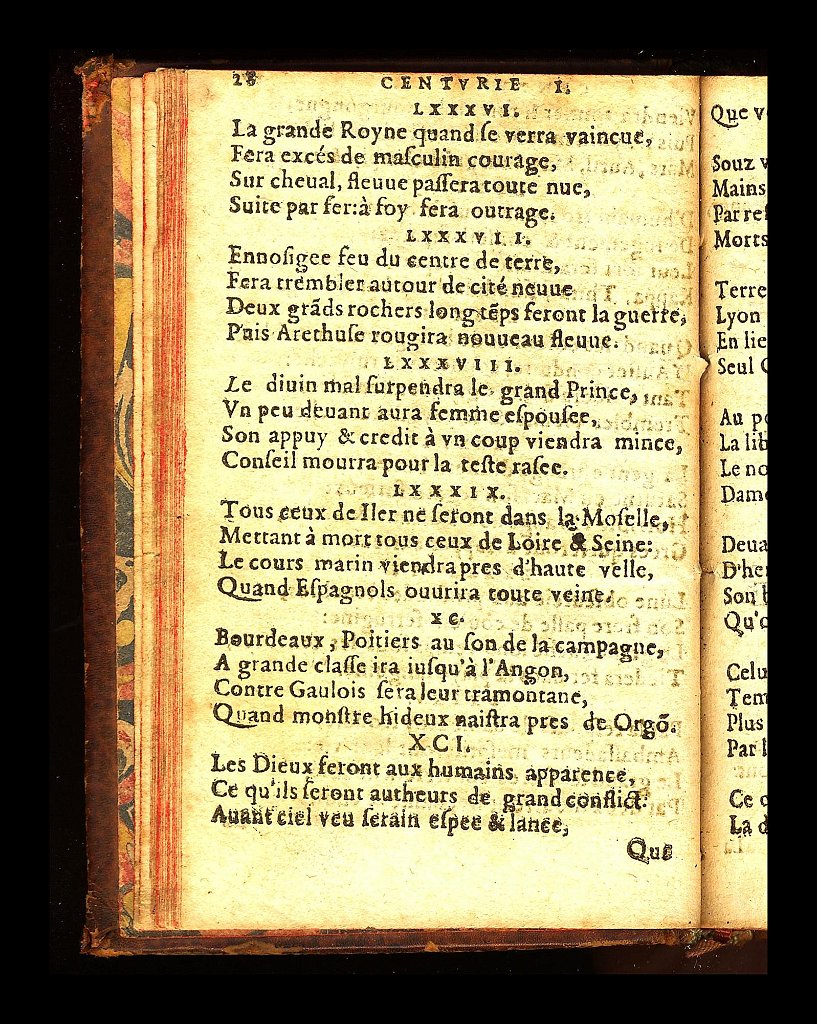 28 CENTVRIE I.
LXXXVI.
La grande Royne quand ſe verra vaincue,
Fera excés de maſculin courage,
Sur cheual, fleuue paſſera toute nue,
Suite par fer: à foy fera outrage.
LXXXVII.
Ennoſigee feu du centre de terre,
Fera trembler autour de cité neuue
Deux grãds rochers long tẽps feront la guerre,
Puis Arethuſe rougira nouueau fleuue.
LXXXVIII.
Le diuin mal ſurpendra le grand Prince,
Vn peu deuant aura femme eſpouſee,
Son appuy & credit à vn coup viendra mince,
Conſeil mourra pour la teſte raſee.
LXXXIX.
Tous ceux de Iler ne ſeront dans la Moſelle,
Mettant à mort tous ceux de Loire & Seine:
Le cours marin viendra pres d'haute velle,
Quand Eſpagnols ouurira toute veine.
XC.
Bourdeaux, Poitiers au ſon de la campagne,
A grande claſſe ira iuſqu'à l'Angon,
Contre Gaulois ſera leur tramontane,
Quand monſtre hideux naiſtra pres de Orgõ.
XCI.
Les Dieux feront aux humains apparence,
Ce qu'ils ſeront autheurs de grand conflict:
Auant ciel veu ſerain eſpee & lance,
Que
Que
Souz
Mains
Par
Morts
Terre
Lyon
En lie
Seul
Au
La
Le
Deua
Son
Plus
Par
Ce
La